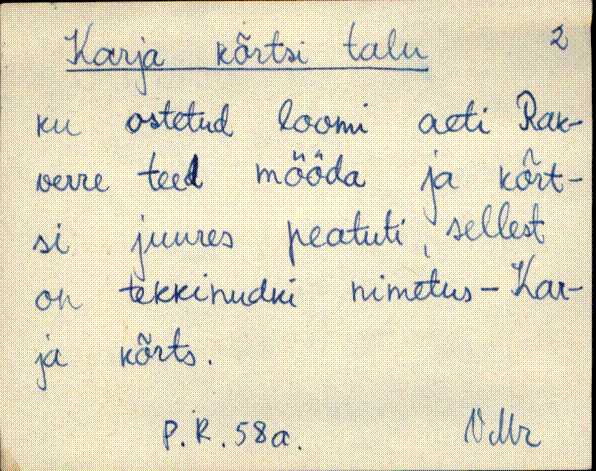 Karja kõrtsi talu 2
ku ostetud loomi aeti Rak-
verre teed mööda ja kõrt-
si juures peatuti, sellest
on tekkinudki nimetus - Kar-
ja kõrts.
P.R. 58a.